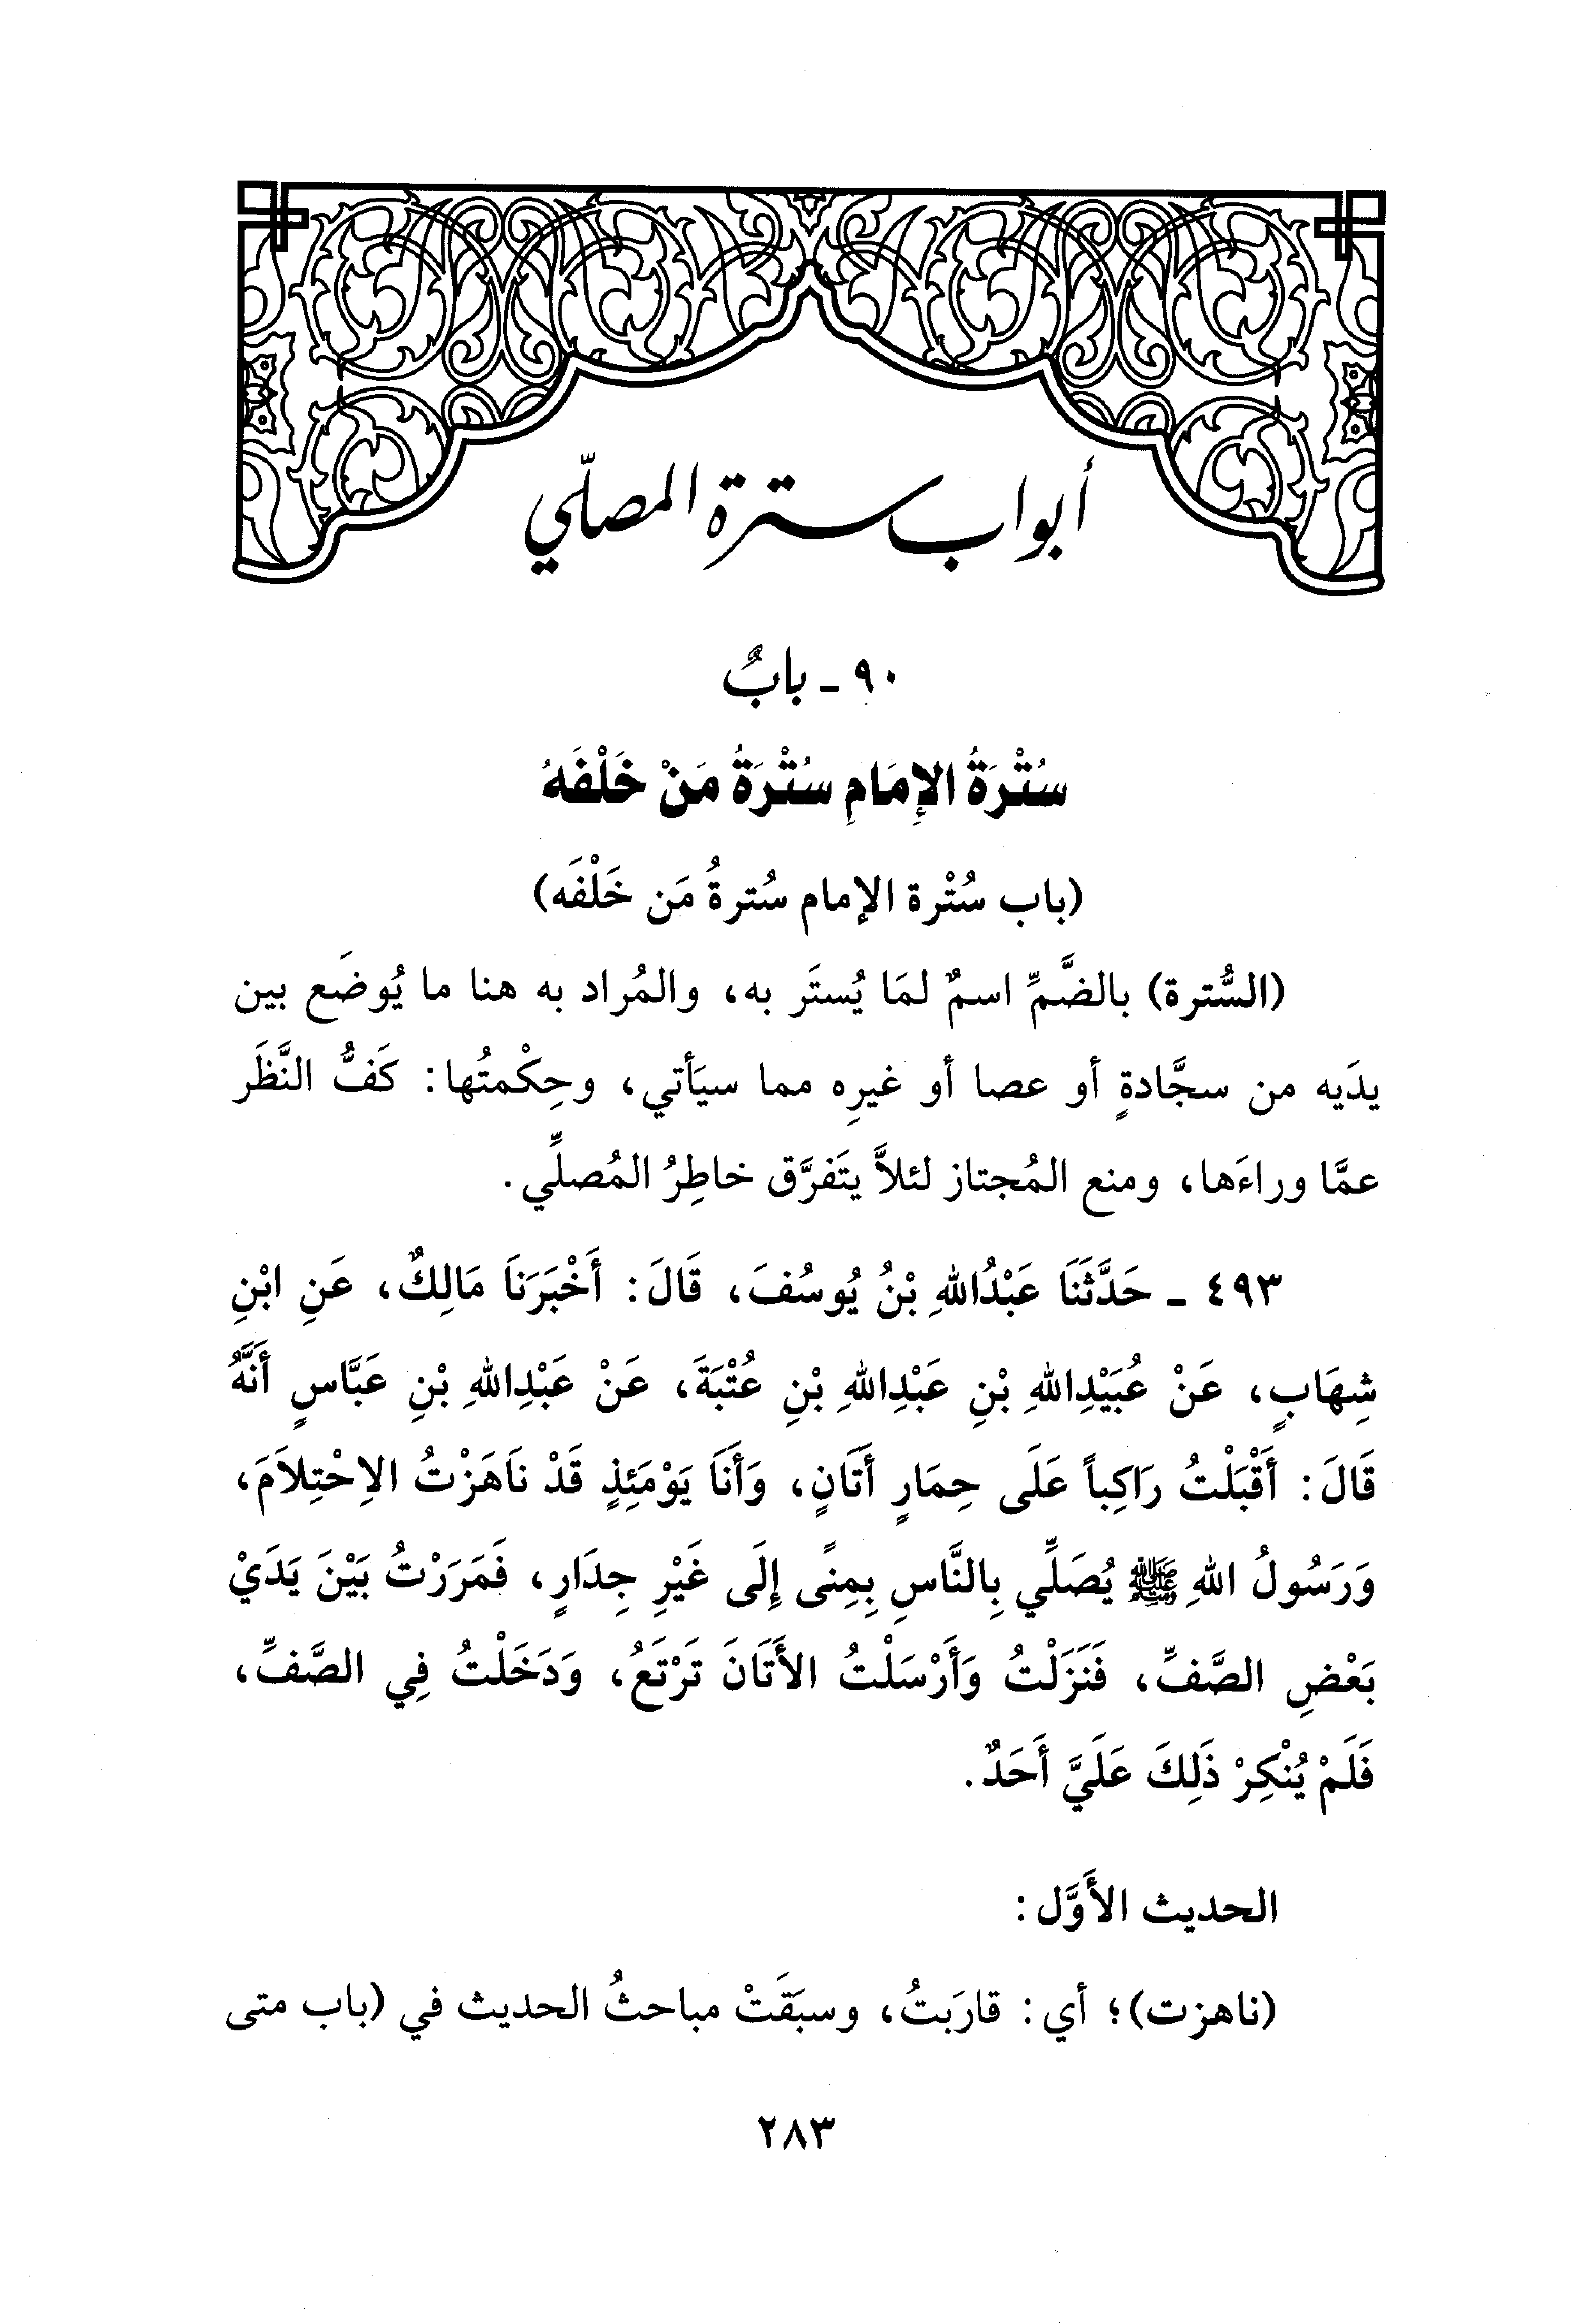 أبواب سترة المصلّي
٩٠ - بابٌ
سُتْرَةُ الإِمَامِ سُتْرَةُ مَنْ خَلْفَهُ
(باب سُتْرة الإمام سُترةُ مَن خَلْفَه)
(السُّترة) بالضَّمِّ اسمٌ لمَا يُستَر به، والمُراد به هنا ما يُوضَع بين
يدَيه من سجَّادةٍ أو عصا أو غيرِه مما سيَأتي، وحِكْمتُها: كَفُّ النَّظَر
عمَّا وراءَها، ومنع المُجتاز لئلاَّ يتَفرَّق خاطِرُ المُصلِّي.
٤٩٣ - حَدَّثَنَا عَبْدُاللهِ بْنُ يُوسُفَ، قَالَ: أَخْبَرَنَا مَالِكٌ، عَنِ ابْنِ
شِهَابٍ، عَنْ عُبَيْدِاللهِ بْنِ عَبْدِاللهِ بْنِ عُتْبَةَ، عَنْ عَبْدِاللهِ بْنِ عَبَّاسٍ أَنَّهُ
قَالَ: أَقْبَلْتُ رَاكِباً عَلَى حِمَارٍ أَتَانٍ، وَأَنَا يَوْمَئِذٍ قَدْ نَاهَزْتُ الاِحْتِلاَمَ،
وَرَسُولُ اللهِ ﷺ يُصَلِّي بِالنَّاسِ بِمِنًى إِلَى غَيْرِ جِدَارٍ، فَمَرَرْتُ بَيْنَ يَدَيْ
بَعْضِ الصَّفِّ، فَنَزَلْتُ وَأَرْسَلْتُ الأَتَانَ تَرْتَعُ، وَدَخَلْتُ فِي الصَّفِّ،
فَلَمْ يُنْكِرْ ذَلِكَ عَلَيَّ أَحَدٌ.
الحديث الأَوَّل:
(ناهزت)؛ أي: قارَبتُ، وسبَقَتْ مباحثُ الحديث في (باب متى
٢٨٣